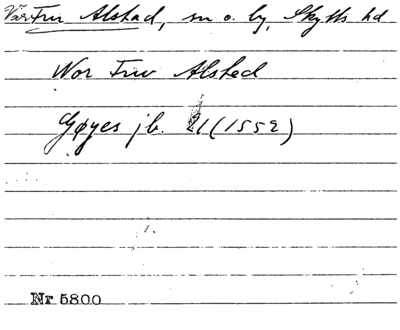 Vår Fru Alstad, sn o. by, Skytts hd
Wor Frw Alsted
Gøyes jb. 21 (1552)
Nr 5800